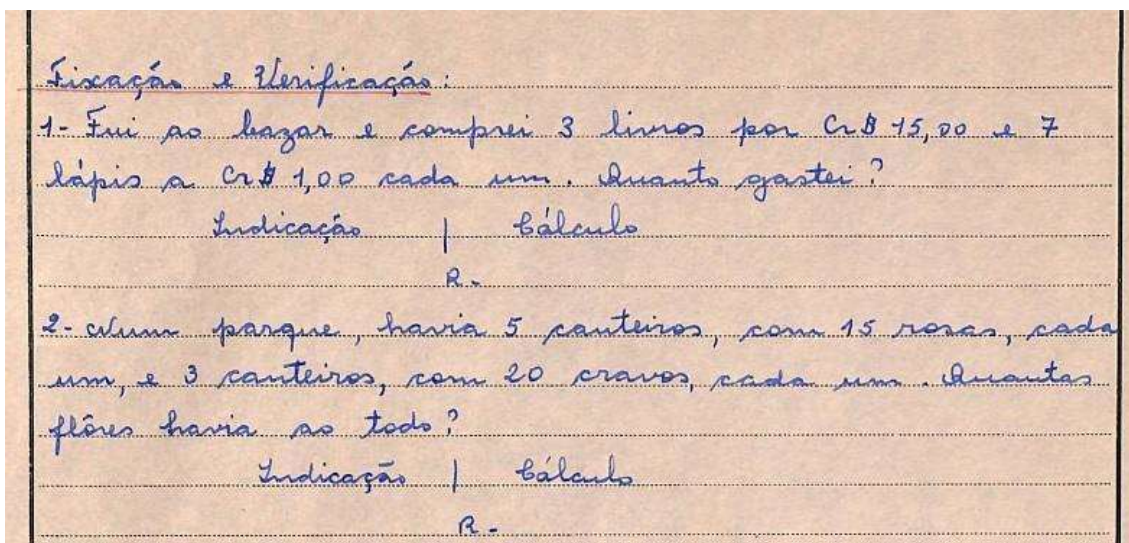 Fixação e Verificação:
1- Fui ao bazar e comprei 3 livros por Cr$ 15,00 e 7
lápis a Cr$ 1,00 cada um. Quanto gastei?
Indicação | Cálculo
R-
2- Num parque, havia 5 canteiros, com 15 rosas, cada
um, e 3 canteiros, com 20 cravos, cada um. Quantas
flôres havia ao todo?
Indicação | Cálculo
R-